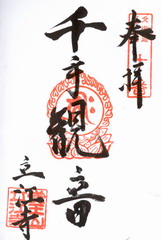 奉拝
千手観音
立江寺